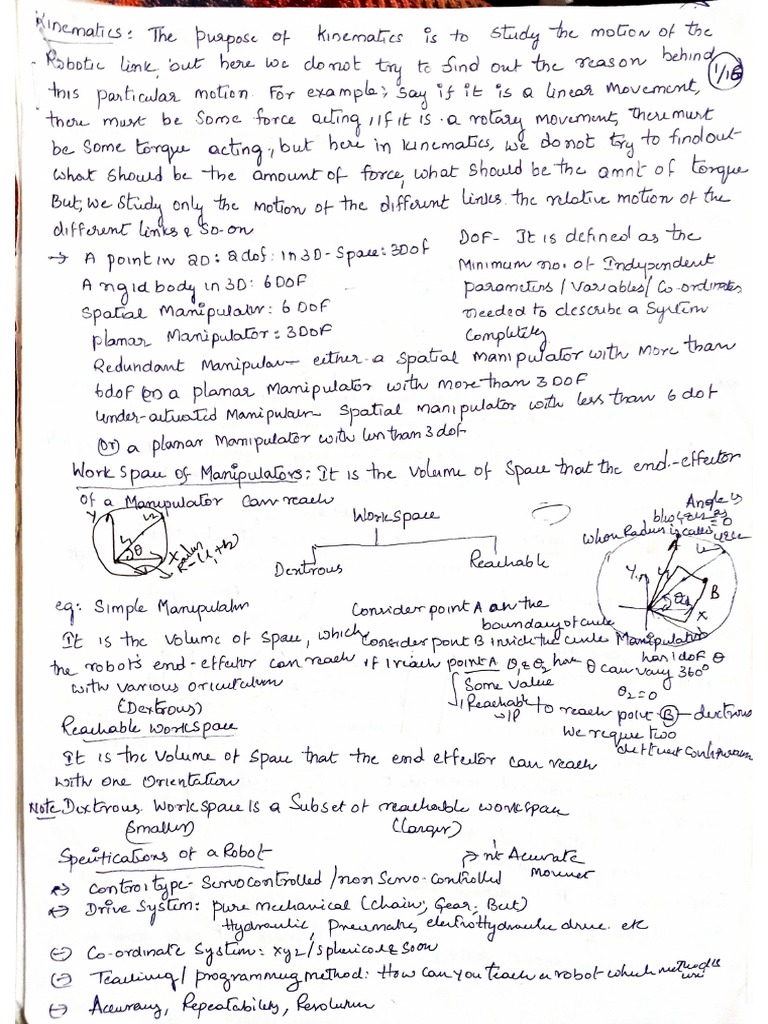 Kinematics: The purpose of kinematics is to study the motion of the
Robotic link, but here we do not try to find out the reason behind
1/16
this particular motion. For example; say if it is a linear movement,
there must be some force acting, if it is a rotary movement, there must
be some torque acting, but here in kinematics, we do not try to find out
what should be the amount of force, what should be the amnt of torque
But, we study only the motion of the different links. the relative motion of the
different links & so-on
→ A point in 2D: 2dof: in 3D-Space: 3Dof
A rigid body in 3D: 6DOF
Spatial Manipulatr: 6DOF
planar Manipulator = 3DOF
DOF- It is defined as the
Minimum no. of Independent
parametrs / Variables / Co-ordinates
needed to describe a System
Completely
Redundant Manipular- either a Spatial manipulator with more than
6dof (or) a planar Manipulator with more than 3DOF
Under-actuated Manipulatr- Spatial manipulator with less than 6 dof
(or) a planar Manipulator with less than 3dof
Work Space of Manipulators: It is the Volume of Space that the end-effector
of a Manipulator can reach
Y
L2
L1
θ
X
R-(L1+L2)
Workspace
Dextrous
Reachable
Angle is
=0
when Radius is called
A
Y
B
X
eg: Simple Manipulatr
It is the Volume of Space, which
the robot's end-effector can reach
with various orientation
(Dextrous)
Consider point A on the
boundary of circle
Consider point B inside the circle
if I reach point A θ1 & θ2 have
Some value
Reachable
Manipulator
has 1dof θ
θ can vary 360°
θ2=0
to reach point B - dextrous
We require two
different Configuration
Reachable Workspace
It is the Volume of Space that the end effector can reach
with one Orientation
Note Dextrous Workspace is a Subset of reachable workspace
(Smaller)
(Larger)
Specifications of a Robot
→ nt Accurate
Movmet
Control type- Servo controlled / non Servo-controlled
Drive System: pure mechanical (chain, Gear, Belt)
Hydraulic, Pneumatic, electroHydraulic drive etc
Co-ordinate System: xyz / Spherical & Soon
Teaching / programming method: How can you teach a robot which method is
use
Accuracy, Repeatability, Resolution